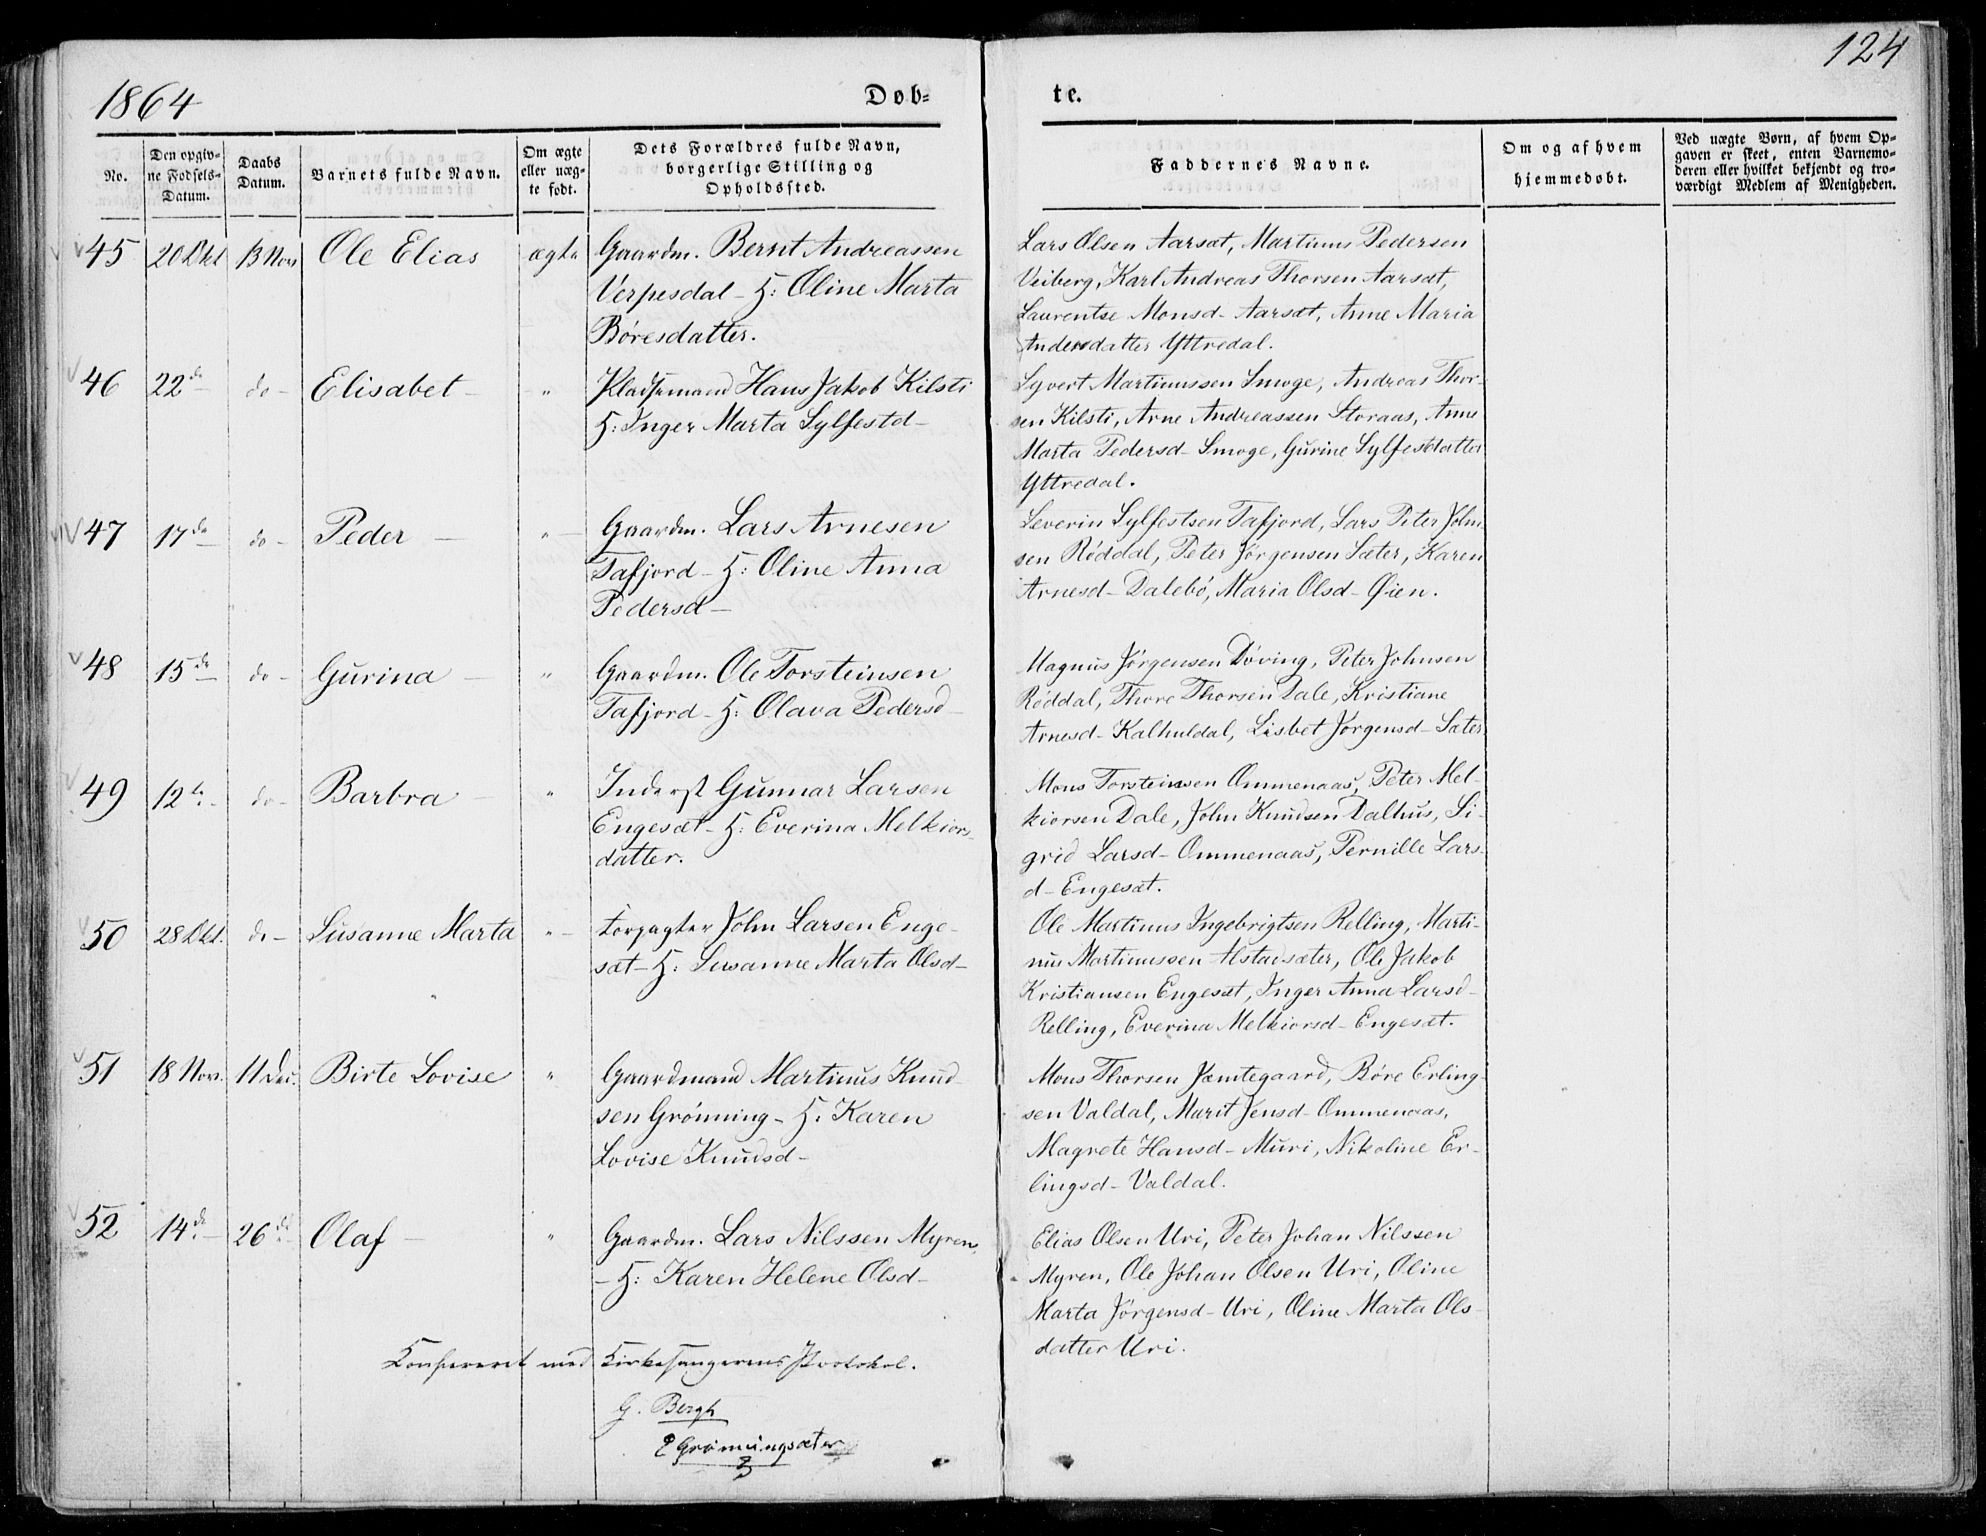 1864
Døb-
te.
124
No.
Den opgiv-
ne Fødsels-
Datum.
Daabs
Datum.
Barnets fulde Navn.
Om ægte
eller uæg-
te født.
Dets Forældres fulde Navn,
borgerlige Stilling og
Opholdssted.
Faddernes Navne.
Om og af hvem
hjemmedøbt.
Ved uægte Børn, af hvem Op-
gaven er skeet, enten Barnemo-
deren eller hvilket bekjendt og tro-
værdigt Medlem af Menigheden.
45 20 Okt 13 Nov Ole Elias ægte Gaardm. Bernt Andreassen
Verpesdal - H: Oline Marta
Børesdatter.
Lars Olsen Aarsæt, Martinus Pedersen
Veiberg, Karl Andreas Thorsen Aarsæt,
Laurentse Monsd- Aarsæt, Anne Maria
Andersdatter Yttredal.
46 22 do do - Elisabet - " Pladsemand Hans Jakob Kilsti
H: Inger Marta Sylfestd-
Syvert Martinussen Smoge, Andreas Thor-
sen Kilsti, Arne Andreassen Storaas, Anne
Marta Pedersd- Smoge, Gurine Sylfestdatter
Yttredal.
47 17 do do - Peder - " Gaardm. Lars Arnesen
Tafjord - H: Oline Anna
Pedersd-
Severin Sylfestsen Tafjord, Lars Peter John-
sen Røddal, Peter Jørgensen Sæter, Karen
Arnesd- Dalebø, Maria Olsd- Øien.
48 15 do do - Gurina - " Gaardm. Ole Torsteinsen
Tafjord - H: Olava Pedersd-
Magnus Jørgensen Døving, Peter Johnsen
Røddal, Thore Thorsen Dale, Kristiane
Arnesd- Kalhuldal, Lisbet Jørgensd- Sæter
49 12 do do - Barbra - " Inderst Gunnar Larsen
Engesæt - H: Everina Melkiors-
datter.
Mons Torsteinsen Ommenaas, Peter Mel-
kiorsen Dale, John Knudsen Dalhus, Si-
grid Larsd- Ommenaas, Pernille Lars-
d- Engesæt.
50 28 Okt. do - Susanne Marta " Forpagter John Larsen Enge-
sæt - H: Susanne Marta Olsd-
Ole Martinus Ingebrigtsen Relling, Marti-
nus Martinussen Alstadsæter, Ole Jakob
Kristiansen Engesæt, Inger Anna Larsd-
Relling, Everina Melkiorsd- Engesæt.
51 18 Nov. 11 Dec. Birte Lovise " Gaardmand Martinus Knud-
sen Grønning - H. Karen
Lovise Knudsd-
Mons Thorsen Jæmtegaard, Børe Erling-
sen Valdal, Marit Jensd- Ommenaas,
Magrete Hansd- Muri, Nikoline Er-
lingsd- Valdal.
52 14 do 26 do Olaf - " Gaardm. Lars Nilssen Myren,
- H: Karen Helene Olsd-
Elias Olsen Uri, Peter Johan Nilssen
Myren, Ole Johan Olsen Uri, Oline
Marta Jørgensd- Uri, Oline Marta Ols-
datter Uri.
Konfereret med Kirkesangerens Protokol.
G. Bergh
E Grønningsæter